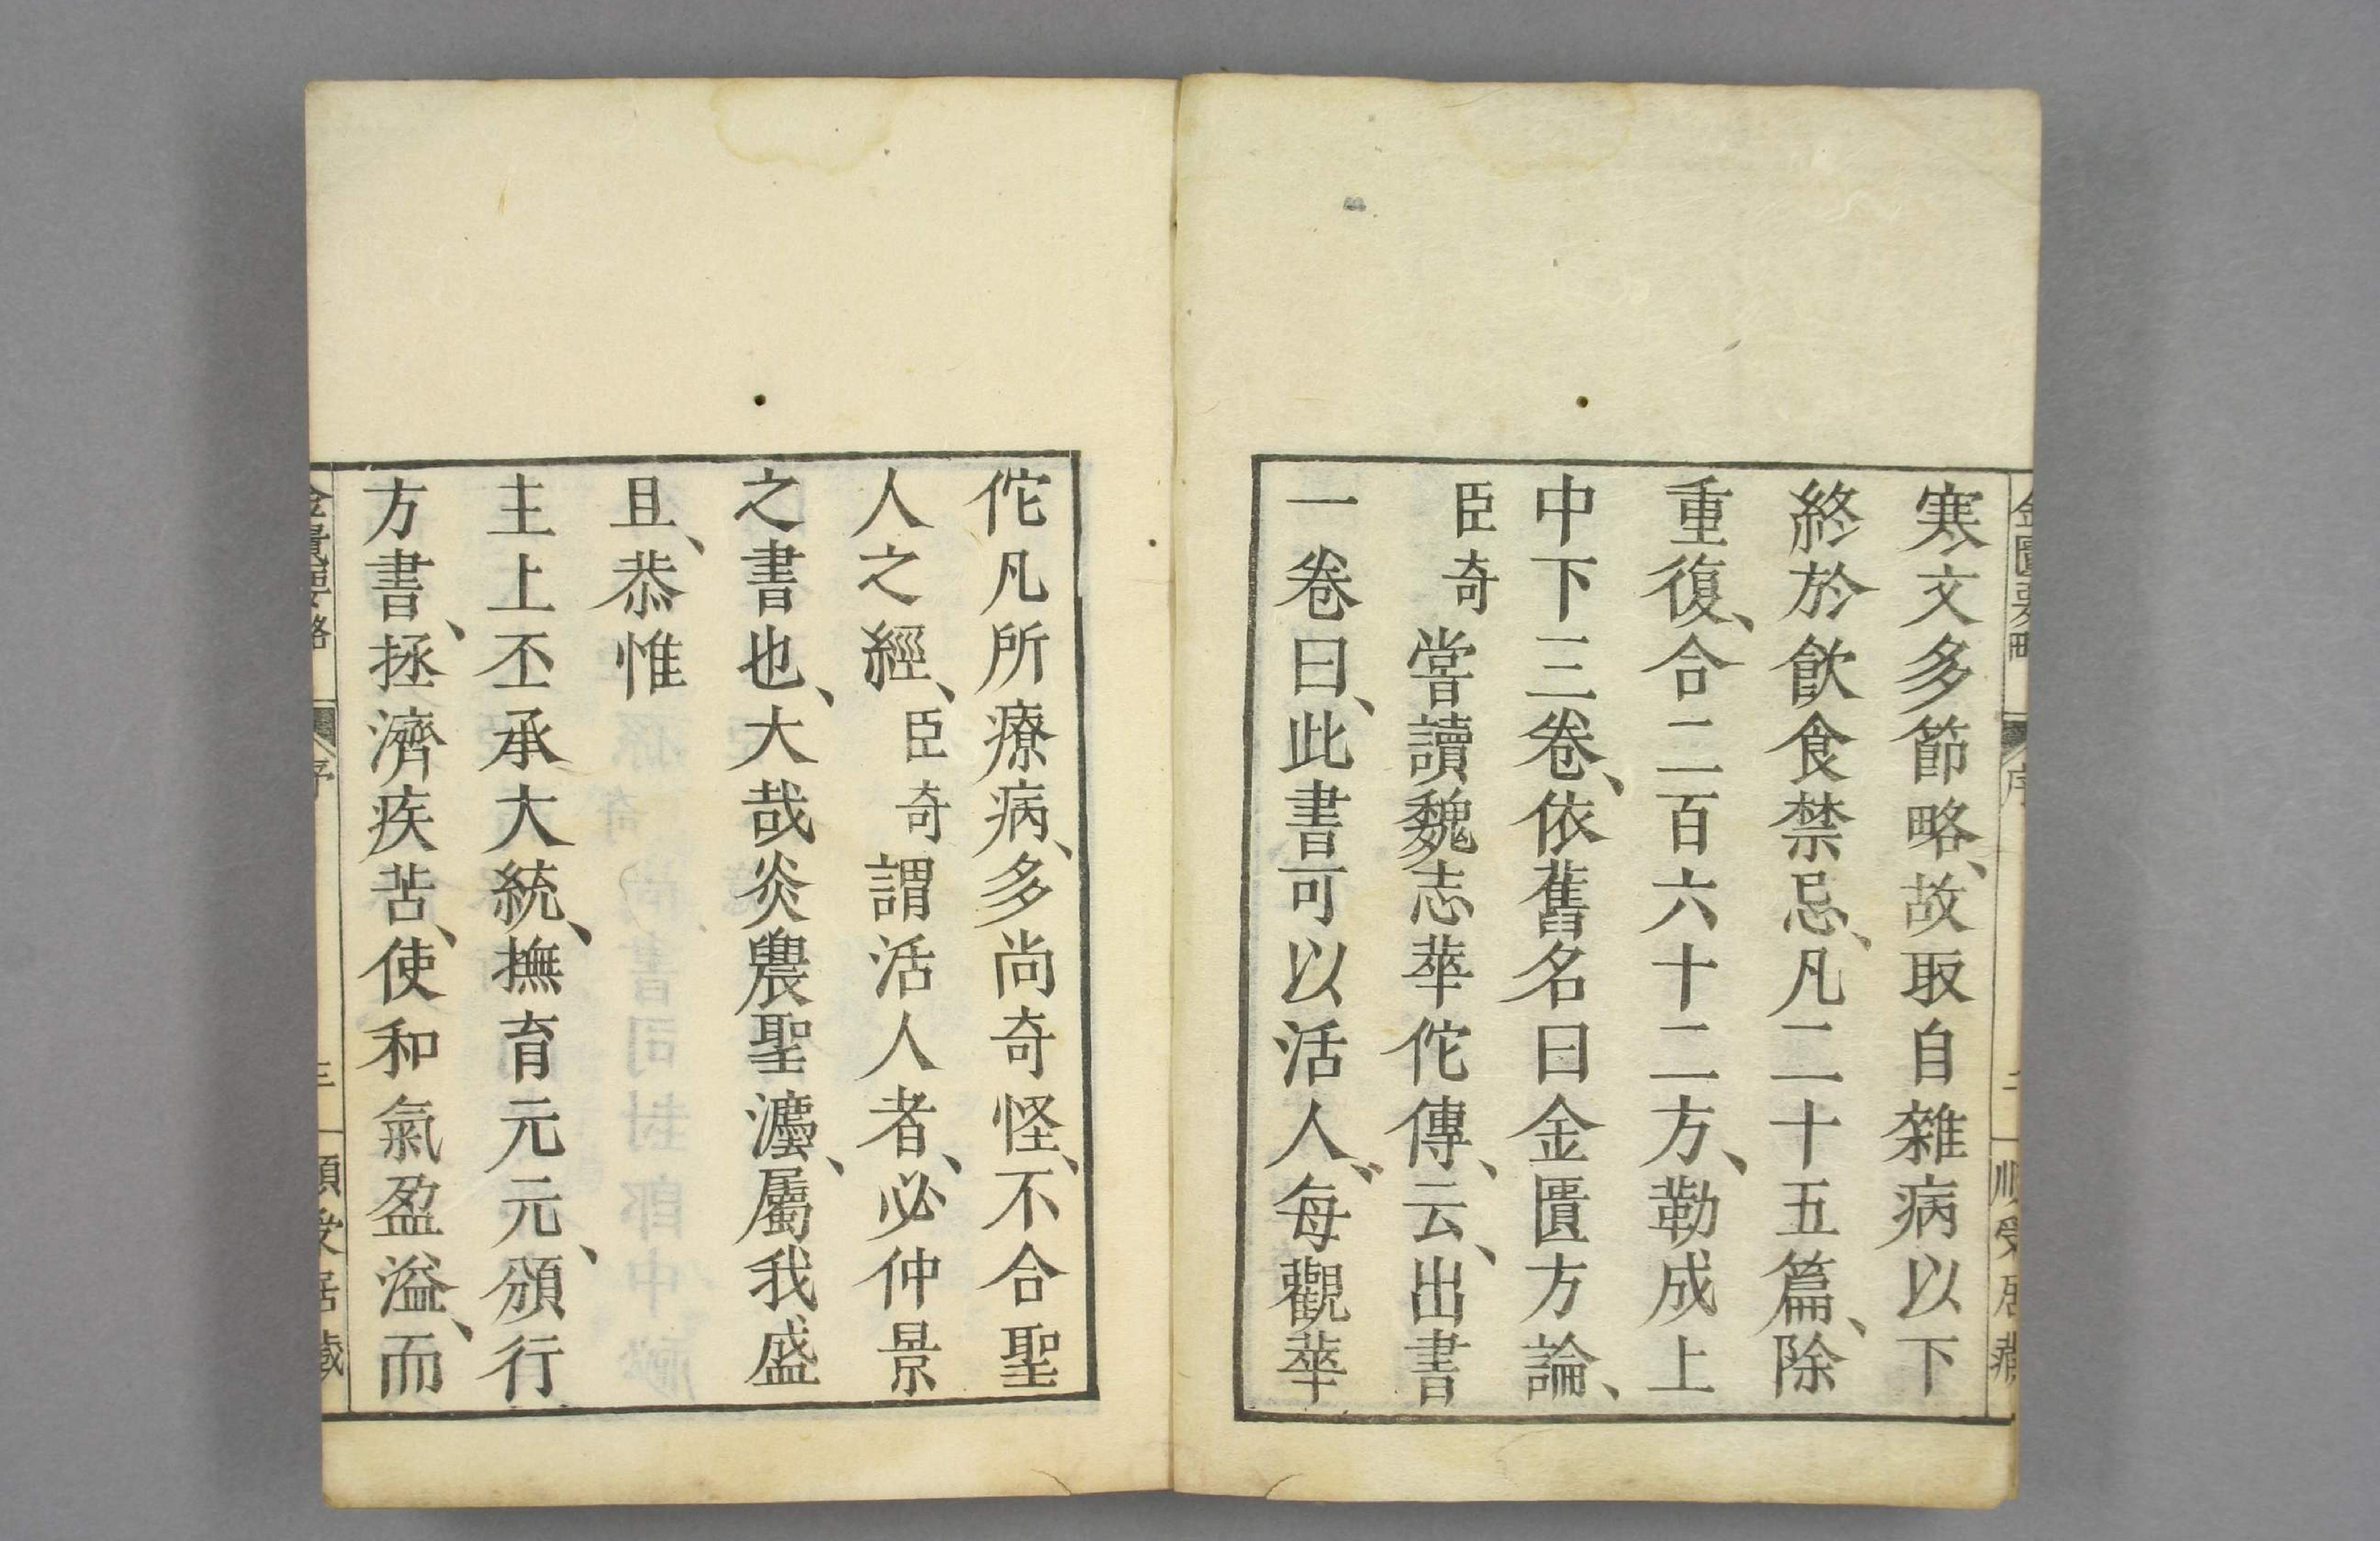 寒文多節略、故取自雜病以下
終於飲食禁忌、凡二十五篇、除
重復、合二百六十二方、勒成上
中下三卷、依舊名曰金匱方論、
臣奇嘗讀魏志華佗傳、云、出書
一卷曰、此書可以活人、每觀華
佗凡所療病、多尚奇怪、不合聖
人之經、臣奇謂活人者、必仲景
之書也、大哉炎農聖灋、屬我盛
旦、恭惟
主上丕承大統、撫育元元、頒行
方書、拯濟疾苦、使和氣盈溢、而
金匱要略 序 三 順受居藏